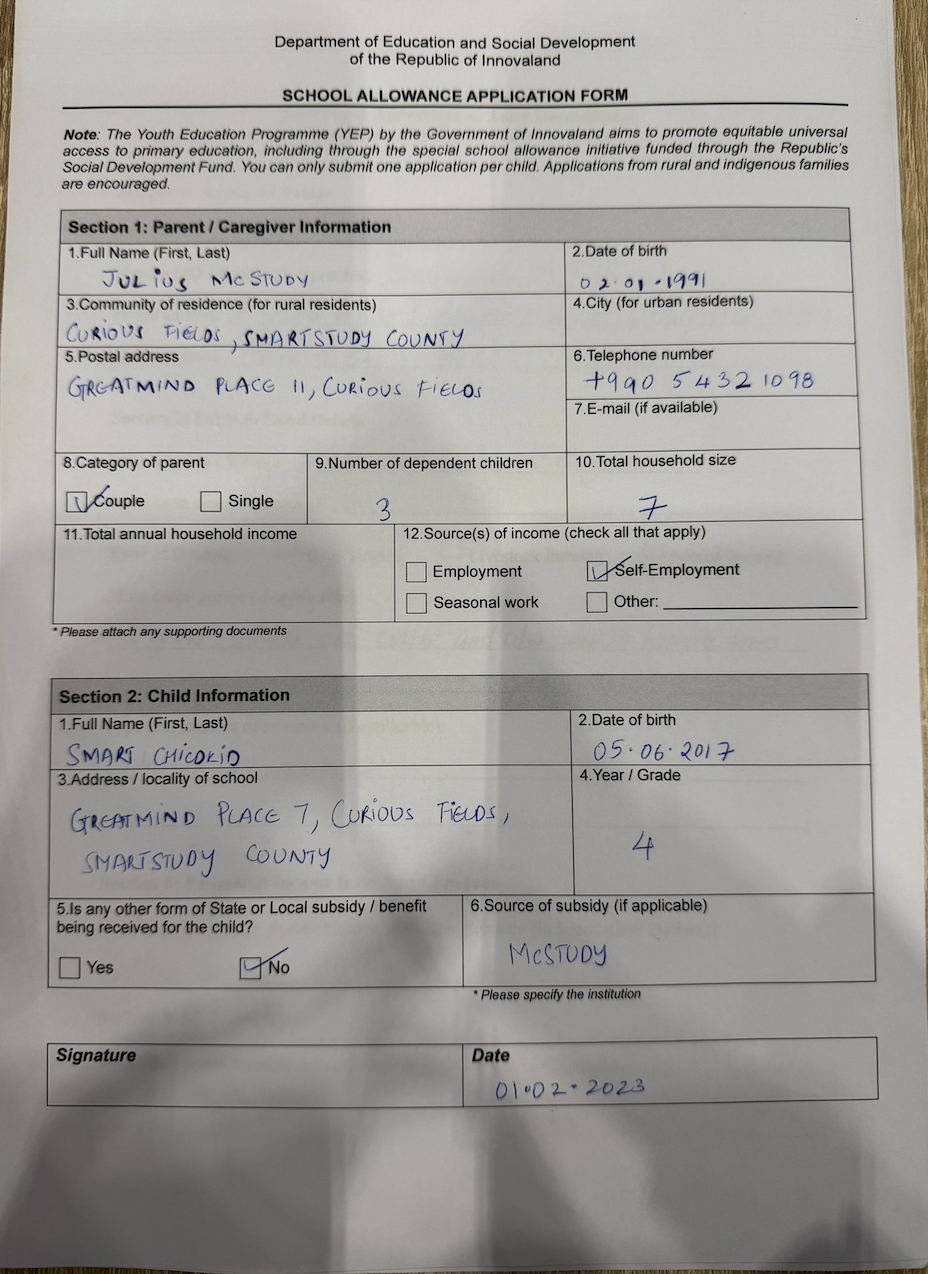 Department of Education and Social Development
of the Republic of Innovaland
SCHOOL ALLOWANCE APPLICATION FORM
Note: The Youth Education Programme (YEP) by the Government of Innovaland aims to promote equitable universal
access to primary education, including through the special school allowance initiative funded through the Republic's
Social Development Fund. You can only submit one application per child. Applications from rural and indigenous families
are encouraged.
Section 1: Parent / Caregiver Information
1.Full Name (First, Last)
JULIUS MCSTUDY
2.Date of birth
02.01.1991
3.Community of residence (for rural residents)
CURIOUS FIELDS, SMARTSTUDY COUNTY
4.City (for urban residents)
5.Postal address
GREATMIND PLACE 11, CURIOUS FIELDS
6.Telephone number
+990 54321098
7.E-mail (if available)
8.Category of parent
Couple Single
9.Number of dependent children
3
10.Total household size
7
11.Total annual household income
12.Source(s) of income (check all that apply)
Employment Self-Employment
Seasonal work Other:
* Please attach any supporting documents
Section 2: Child Information
1.Full Name (First, Last)
SMART CHICOKID
2.Date of birth
05.06.2017
3.Address / locality of school
GREATMIND PLACE 7, CURIOUS FIELDS,
SMARTSTUDY COUNTY
4.Year / Grade
4
5.Is any other form of State or Local subsidy / benefit
being received for the child?
Yes No
6.Source of subsidy (if applicable)
MCSTUDY
* Please specify the institution
Signature
Date
01.02.2023